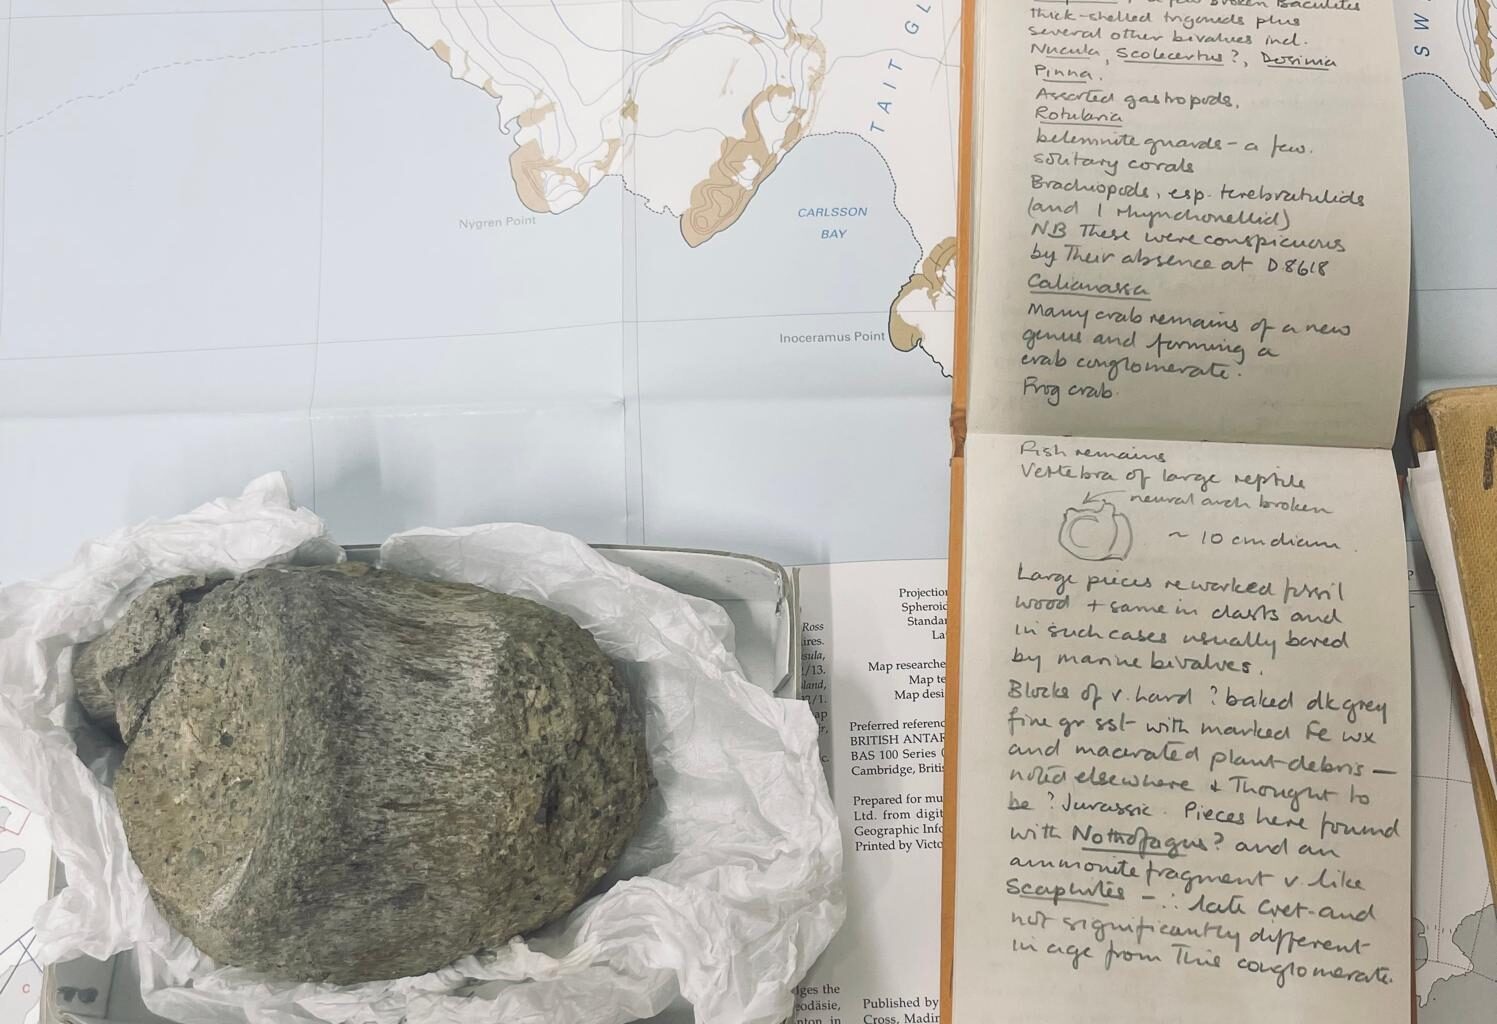 TAIT GL
Nygren Point
CARLSSON
BAY
Inoceramus Point
SW
a few broken Baculites
thick-shelled trigonids plus
several other bivalves incl.
Nucula, Scolecertus?, Dosinia
Pinna.
Assorted gastropods.
Rotularia
belemnite guards - a few.
solitary corals
Brachiopods, esp. terebratulids
(and 1 rhynchonellid)
NB These were conspicuous
by their absence at D8618
Callianassa
Many crab remains of a new
genus and forming a
crab conglomerate.
Frog crab.
Fish remains
Vertebra of large reptile
neural arch broken
~ 10 cm diam.
Large pieces reworked fossil
wood + same in clasts and
in such cases usually bored
by marine bivalves.
Blocks of v. hard ? baked dk grey
fine gr sst with marked Fe wx
and macerated plant debris —
noted elsewhere & thought to
be ? Jurassic. Pieces here found
with Nothofagus? and an
ammonite fragment v. like
Scaphites - ∴ late Cret. and
not significantly different
in age from this conglomerate.
Ross
ires.
sula,
/13.
land,
/1.
ap
c.
Projection
Spheroid
Standar
La
Map researche
Map te
Map desi
Preferred referenc
BRITISH ANTAR
BAS 100 Series (
Cambridge, Britis
Prepared for mu
Ltd. from digit
Geographic Info
Printed by Victo
ges the
eodäsie,
nton in
Published by
Cross, Madin
c